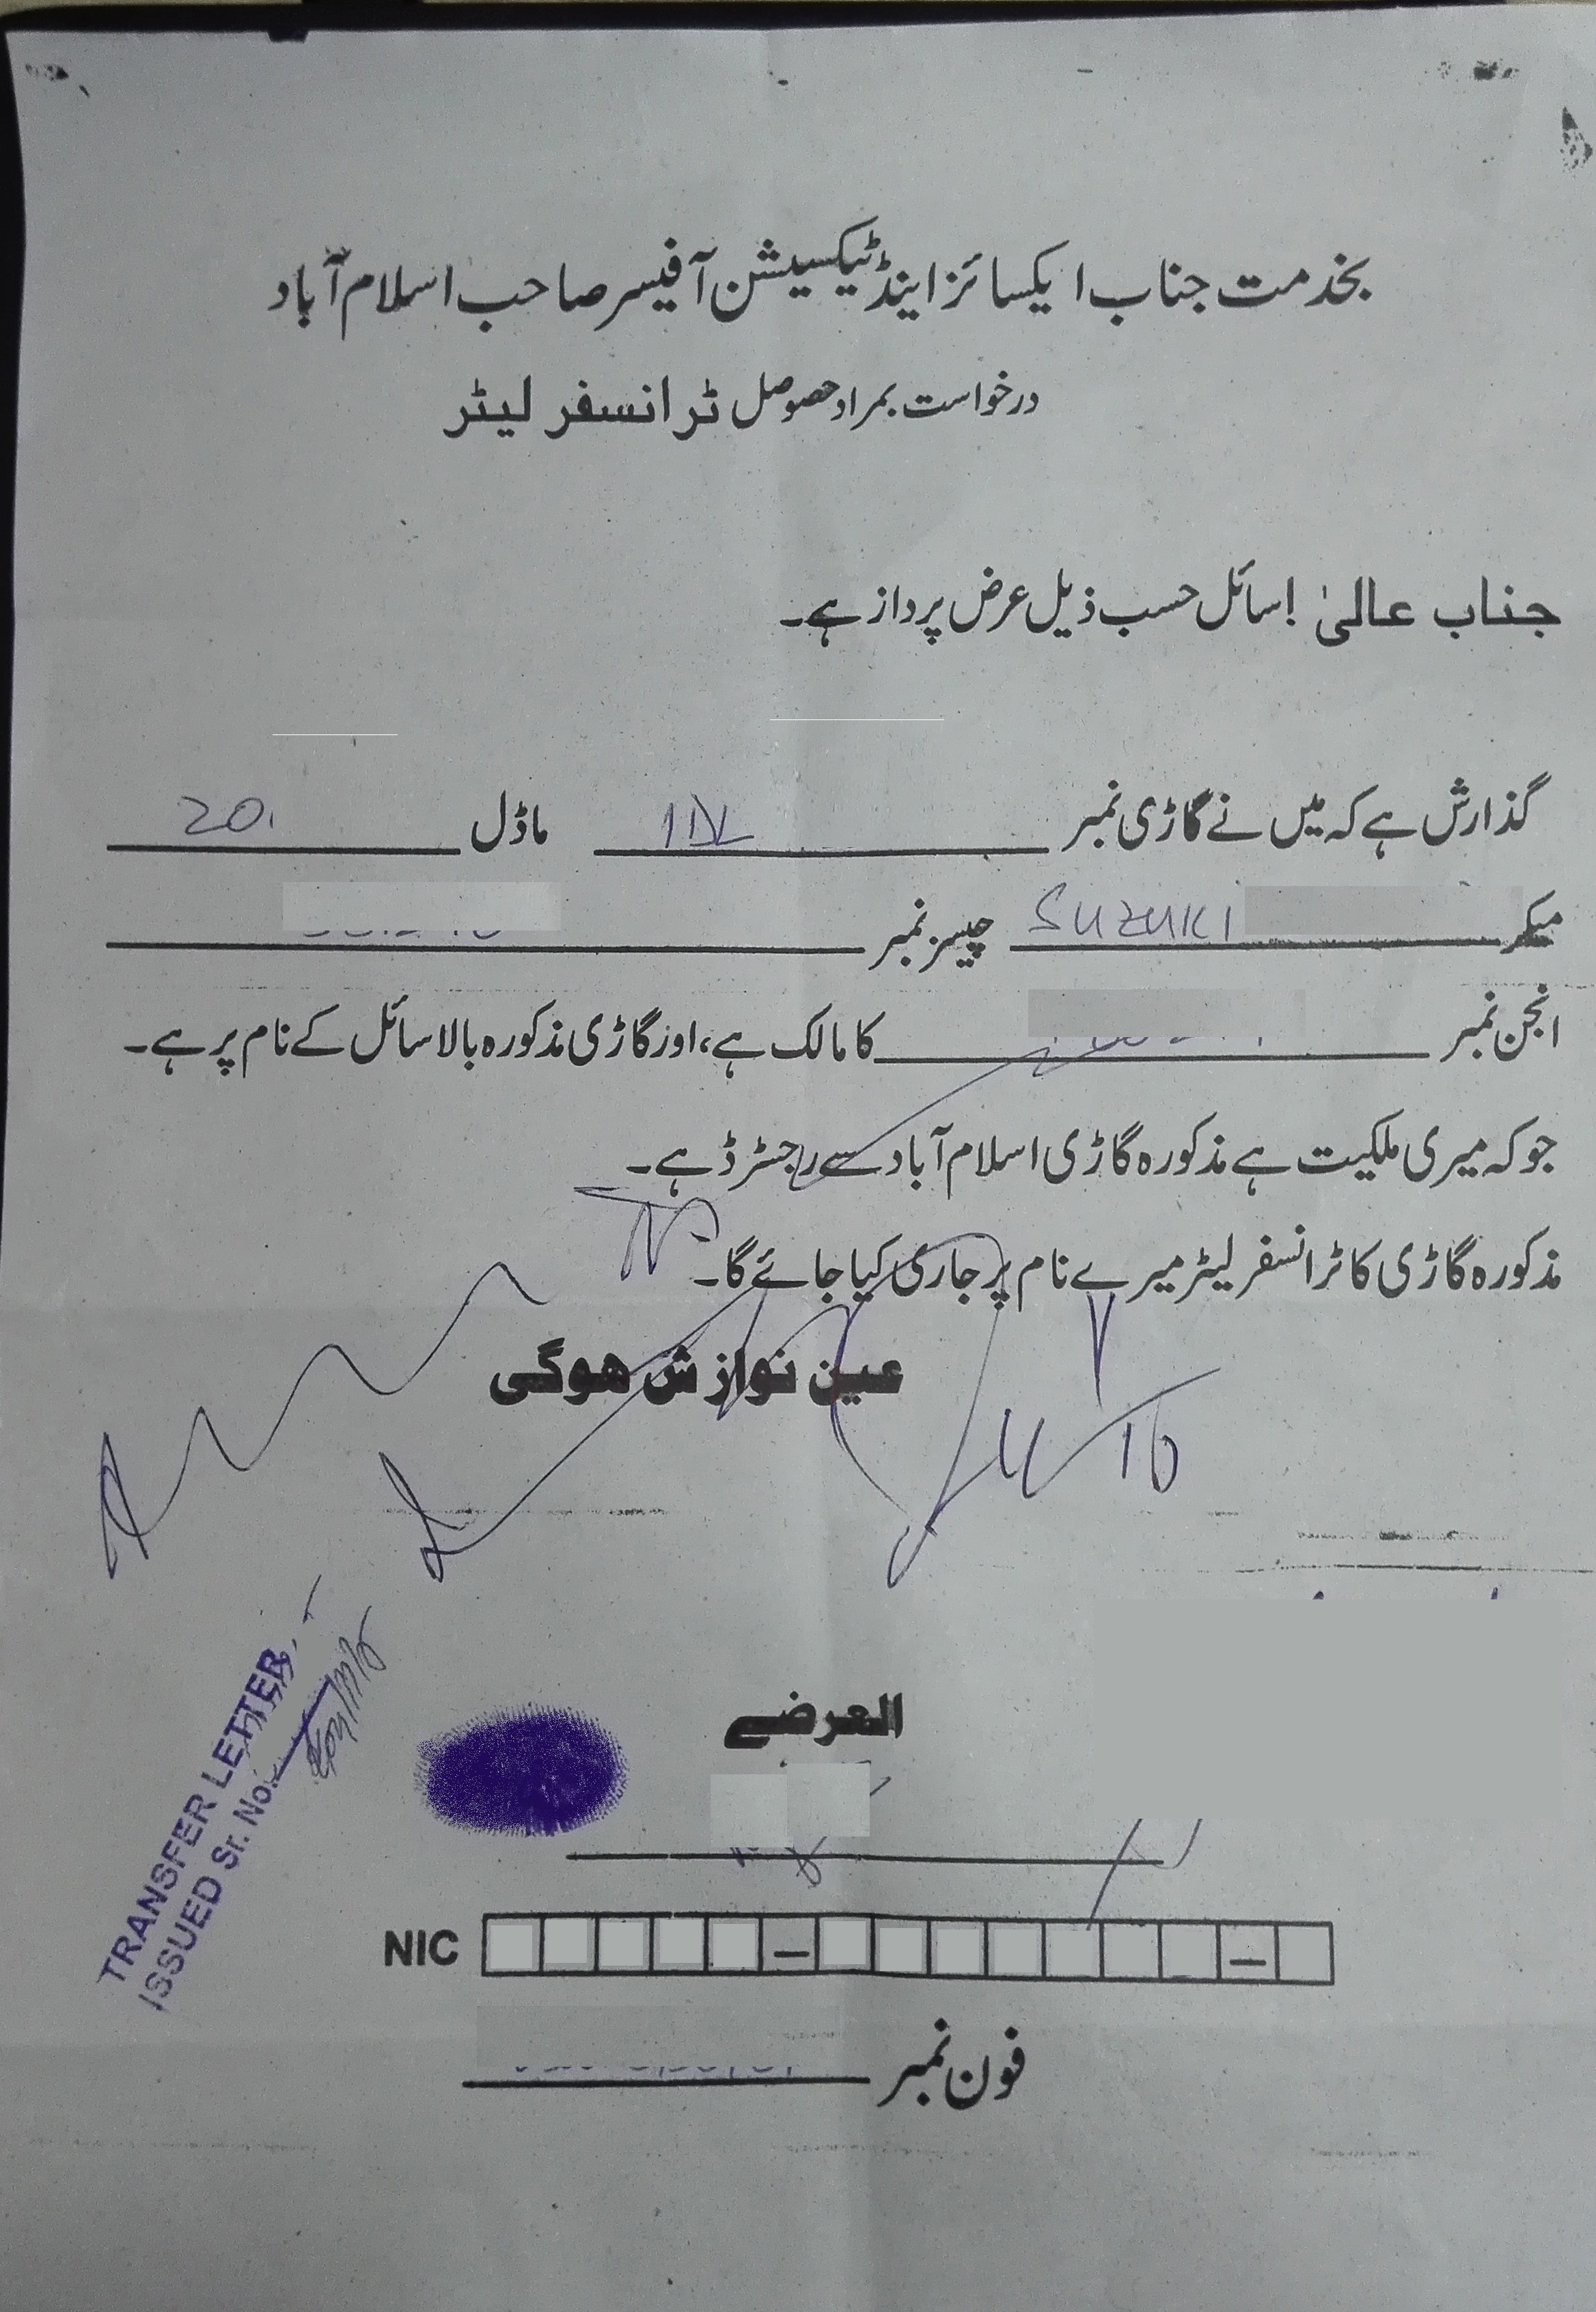 بخدمت جناب ایکسائز اینڈ ٹیکسیشن آفیسر صاحب اسلام آباد
درخواست بمراد حصول ٹرانسفر لیٹر
جناب عالیٰ ! سائل حسب ذیل عرض پرداز ہے۔
گذارش ہے کہ میں نے گاڑی نمبر IDL ماڈل 20
میکر SUZUKI چیسز نمبر
انجن نمبر کا مالک ہے، اور گاڑی مذکورہ بالا سائل کے نام پر ہے۔
جو کہ میری ملکیت ہے مذکورہ گاڑی اسلام آباد سے رجسٹرڈ ہے۔
مذکورہ گاڑی کا ٹرانسفر لیٹر میرے نام پر جاری کیا جائے گا۔
عین نوازش ھوگی
العرضے
TRANSFER LETTER
ISSUED Sr. No.
NIC
فون نمبر